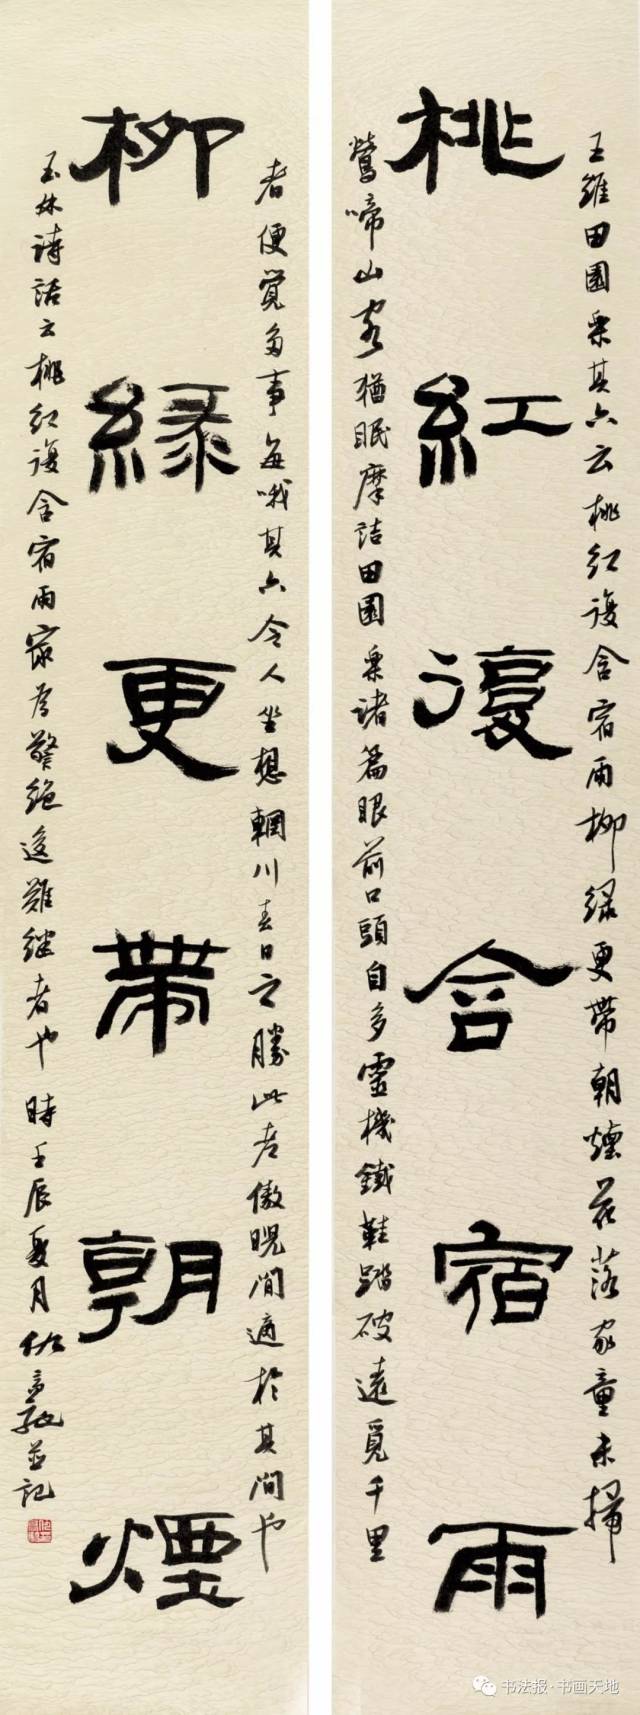 桃紅復含宿雨
王維田園樂其六云桃紅復含宿雨柳綠更帶朝煙花落家童未掃
鶯啼山客猶眠摩詰田園樂諸篇眼前口頭自多靈機鐵鞋踏破遠覓千里
柳綠更帶朝煙
者便覺多事每哦其六令人坐想輞川春日之勝此老傲睨閒適於其間也
玉林詩話云桃紅復含宿雨最為警絕後難繼者也時壬辰夏月
並記
书法报·书画天地